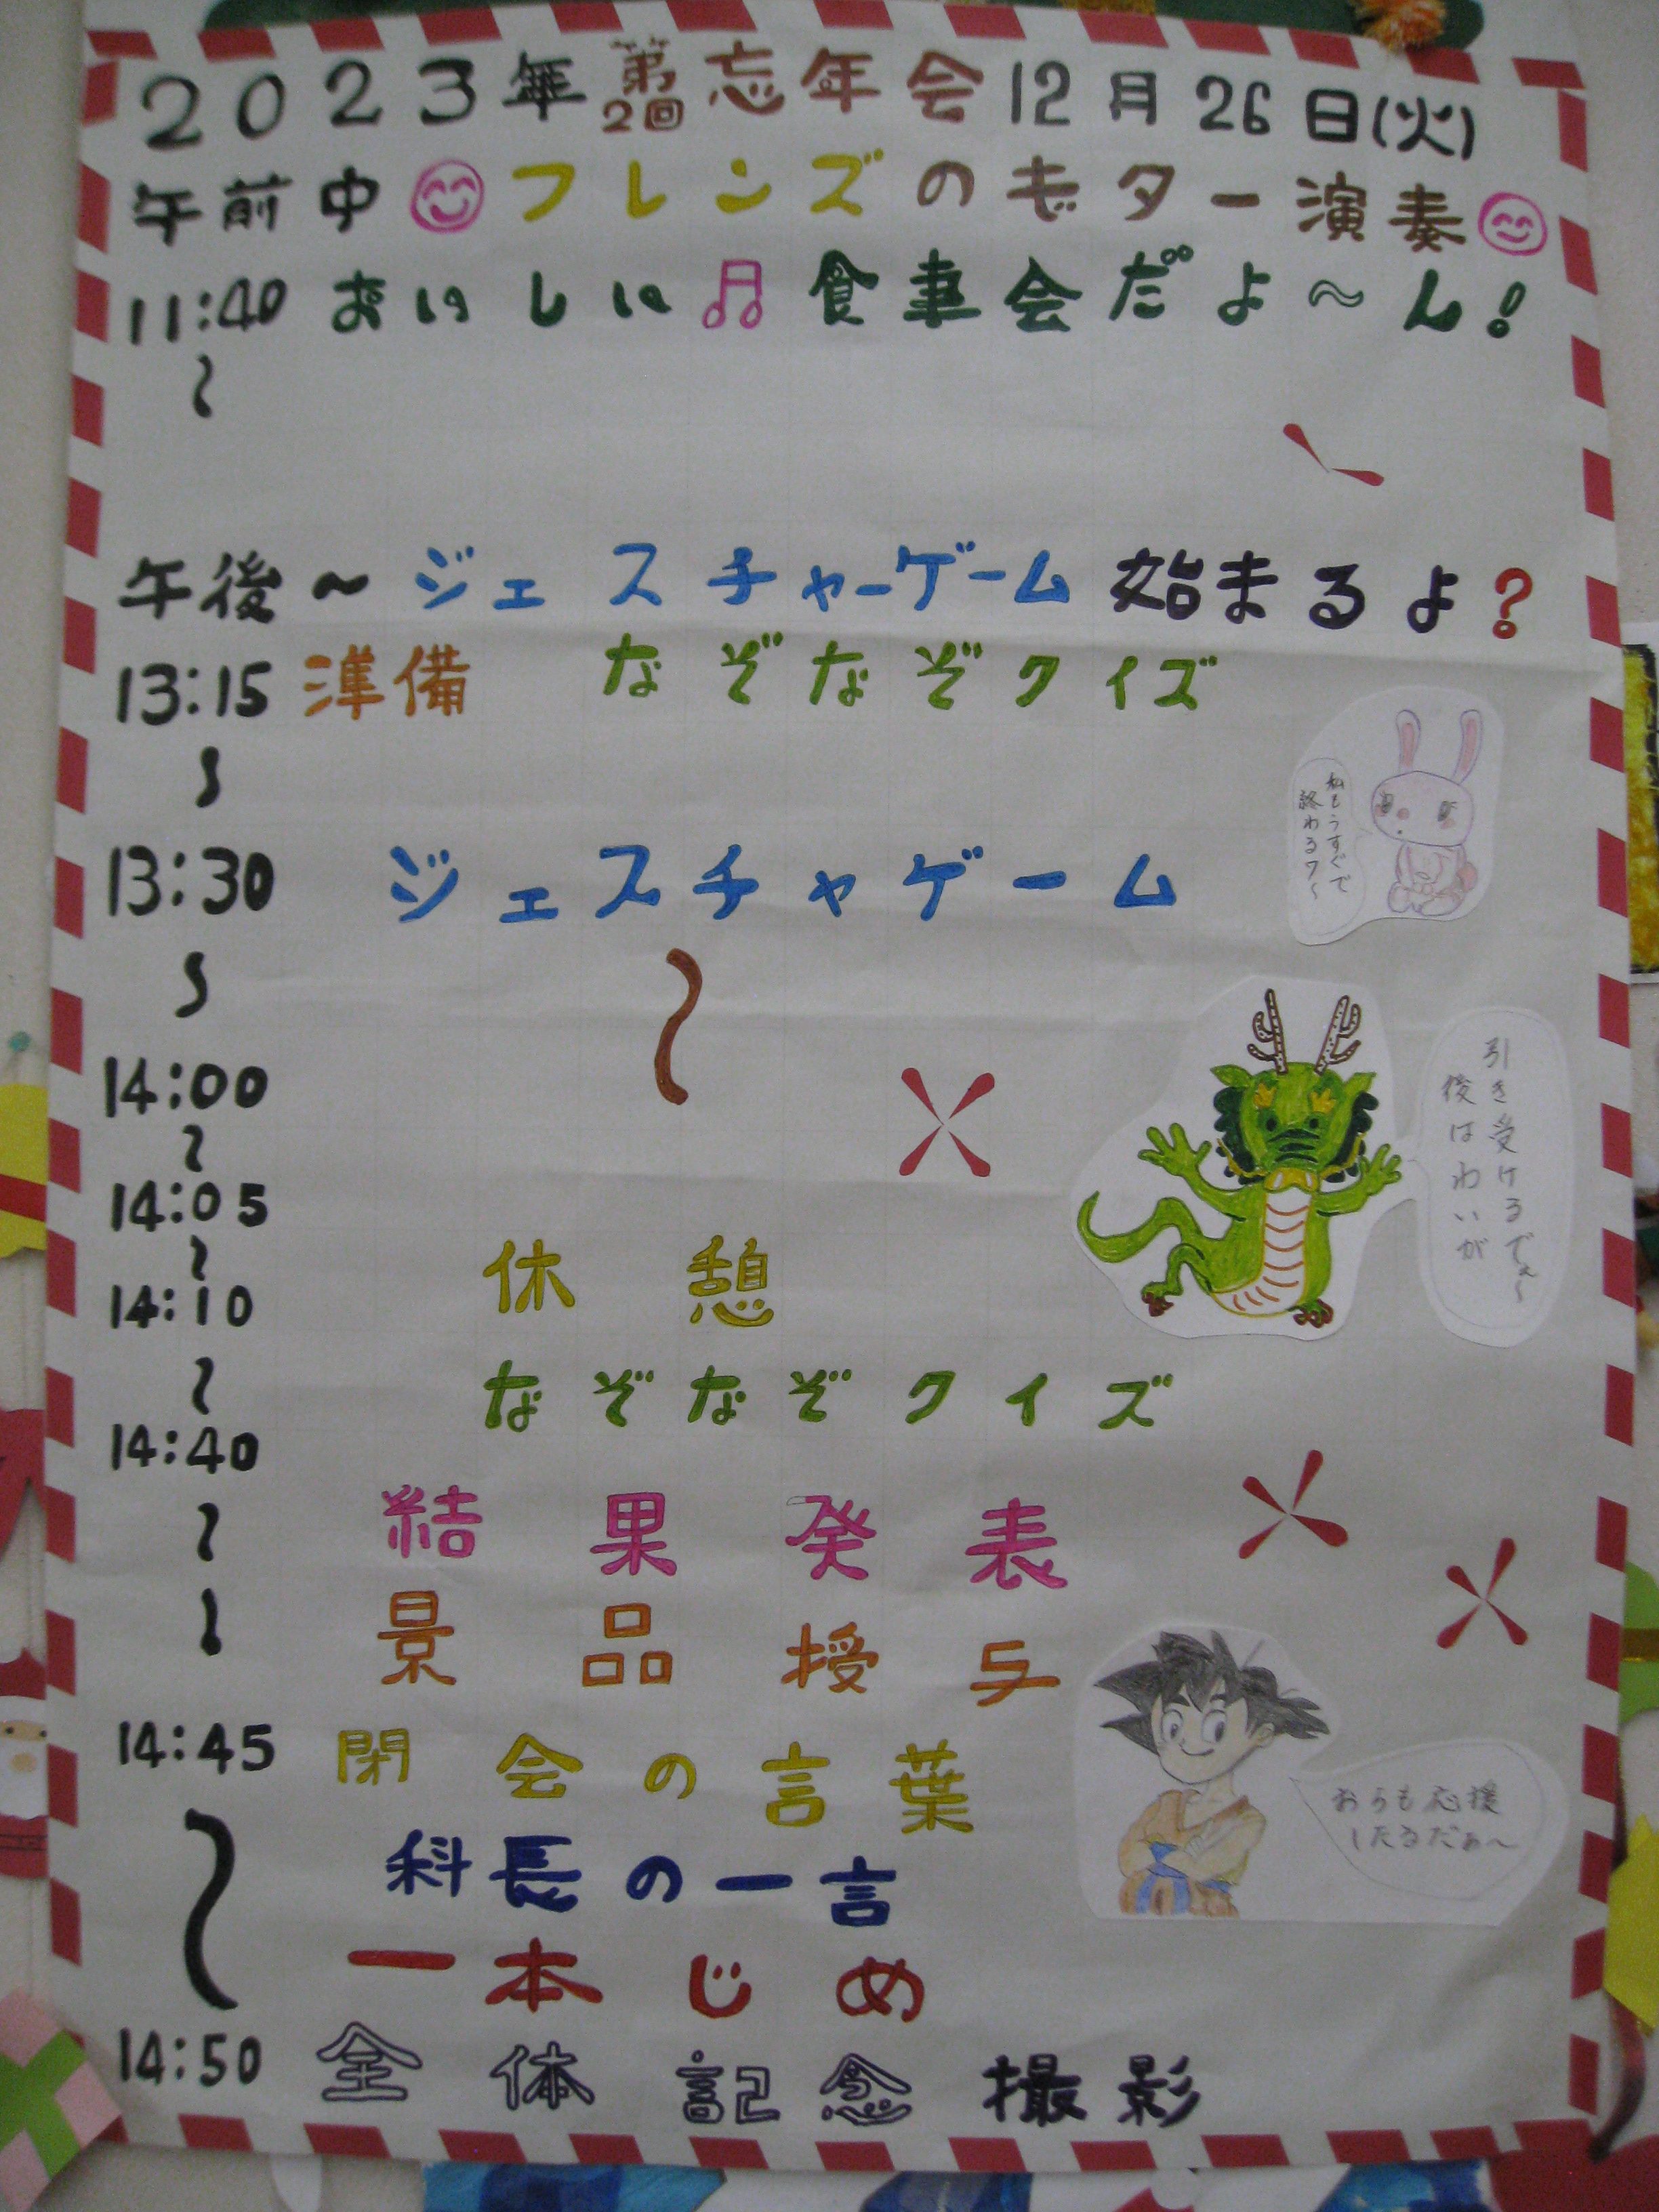 2023年第2回忘年会12月26日(火)
午前中フレンズのギター演奏
11:40 おいしい♫食事会だよ~ん!
~
午後~ジェスチャーゲーム始まるよ?
13:15 準備 なぞなぞクイズ
~
私もうすぐで
終わるワ~
13:30 ジェスチャゲーム
~
~
14:00
~
引き受けるでぇ~
後はわいが
14:05
~
休憩
14:10
~
なぞなぞクイズ
14:40
~
結果発表
景品授与
14:45 閉会の言葉
~
おらも応援
したるだぁ~
科長の一言
一本じめ
14:50 全体記念撮影